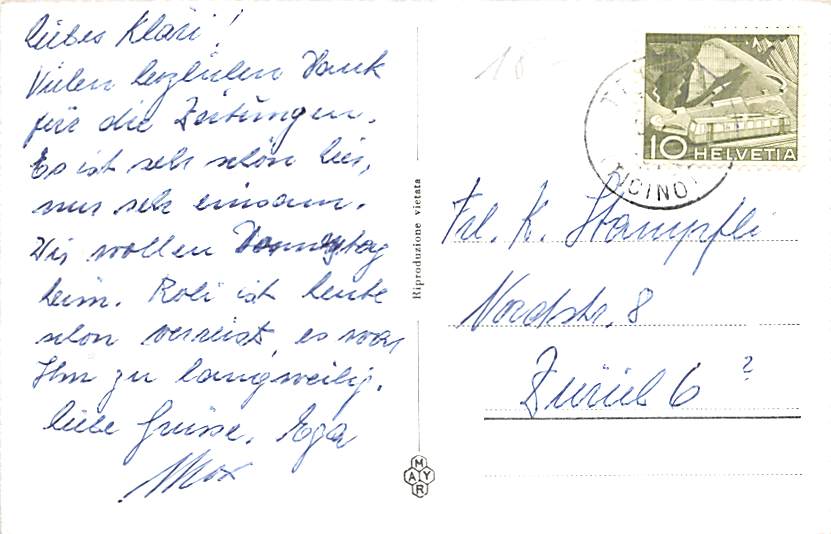 Liebes Kläri!
Vielen herzlichen Dank
für die Zeitungen.
Es ist sehr schön hier,
nur sehr einsam.
Wir wollen
heim. Roli ist heute
schon verreist, es war
Ihm zu langweilig.
liebe Grüsse,
Max
Riproduzione vietata
MAYR
10 HELVETIA
(TICINO)
Frl. K. Stampfli
Nordstr. 8
Zürich 6 ?